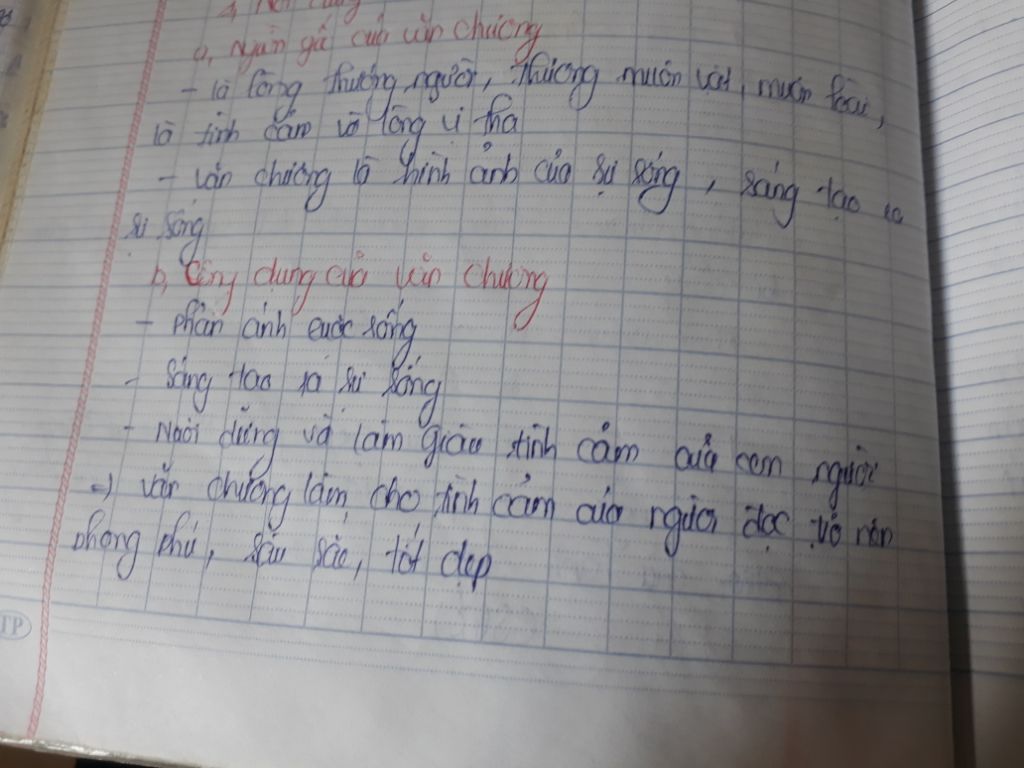 1, Nội dung
a, Nguồn gố của văn chương
- là lòng thương người, thương muôn vật, muôn loài,
là tình cảm và lòng vị tha
- văn chương là hình ảnh của sự sống, sáng tạo ra
sự sống
b, Công dụng của văn chương
- phản ánh cuộc sống
- sáng tạo ra sự sống
- Nuôi dưỡng và làm giàu tình cảm của con người
=) văn chương làm cho tình cảm của người đọc trở nên
phong phú, sâu sắc, tốt đẹp
TP